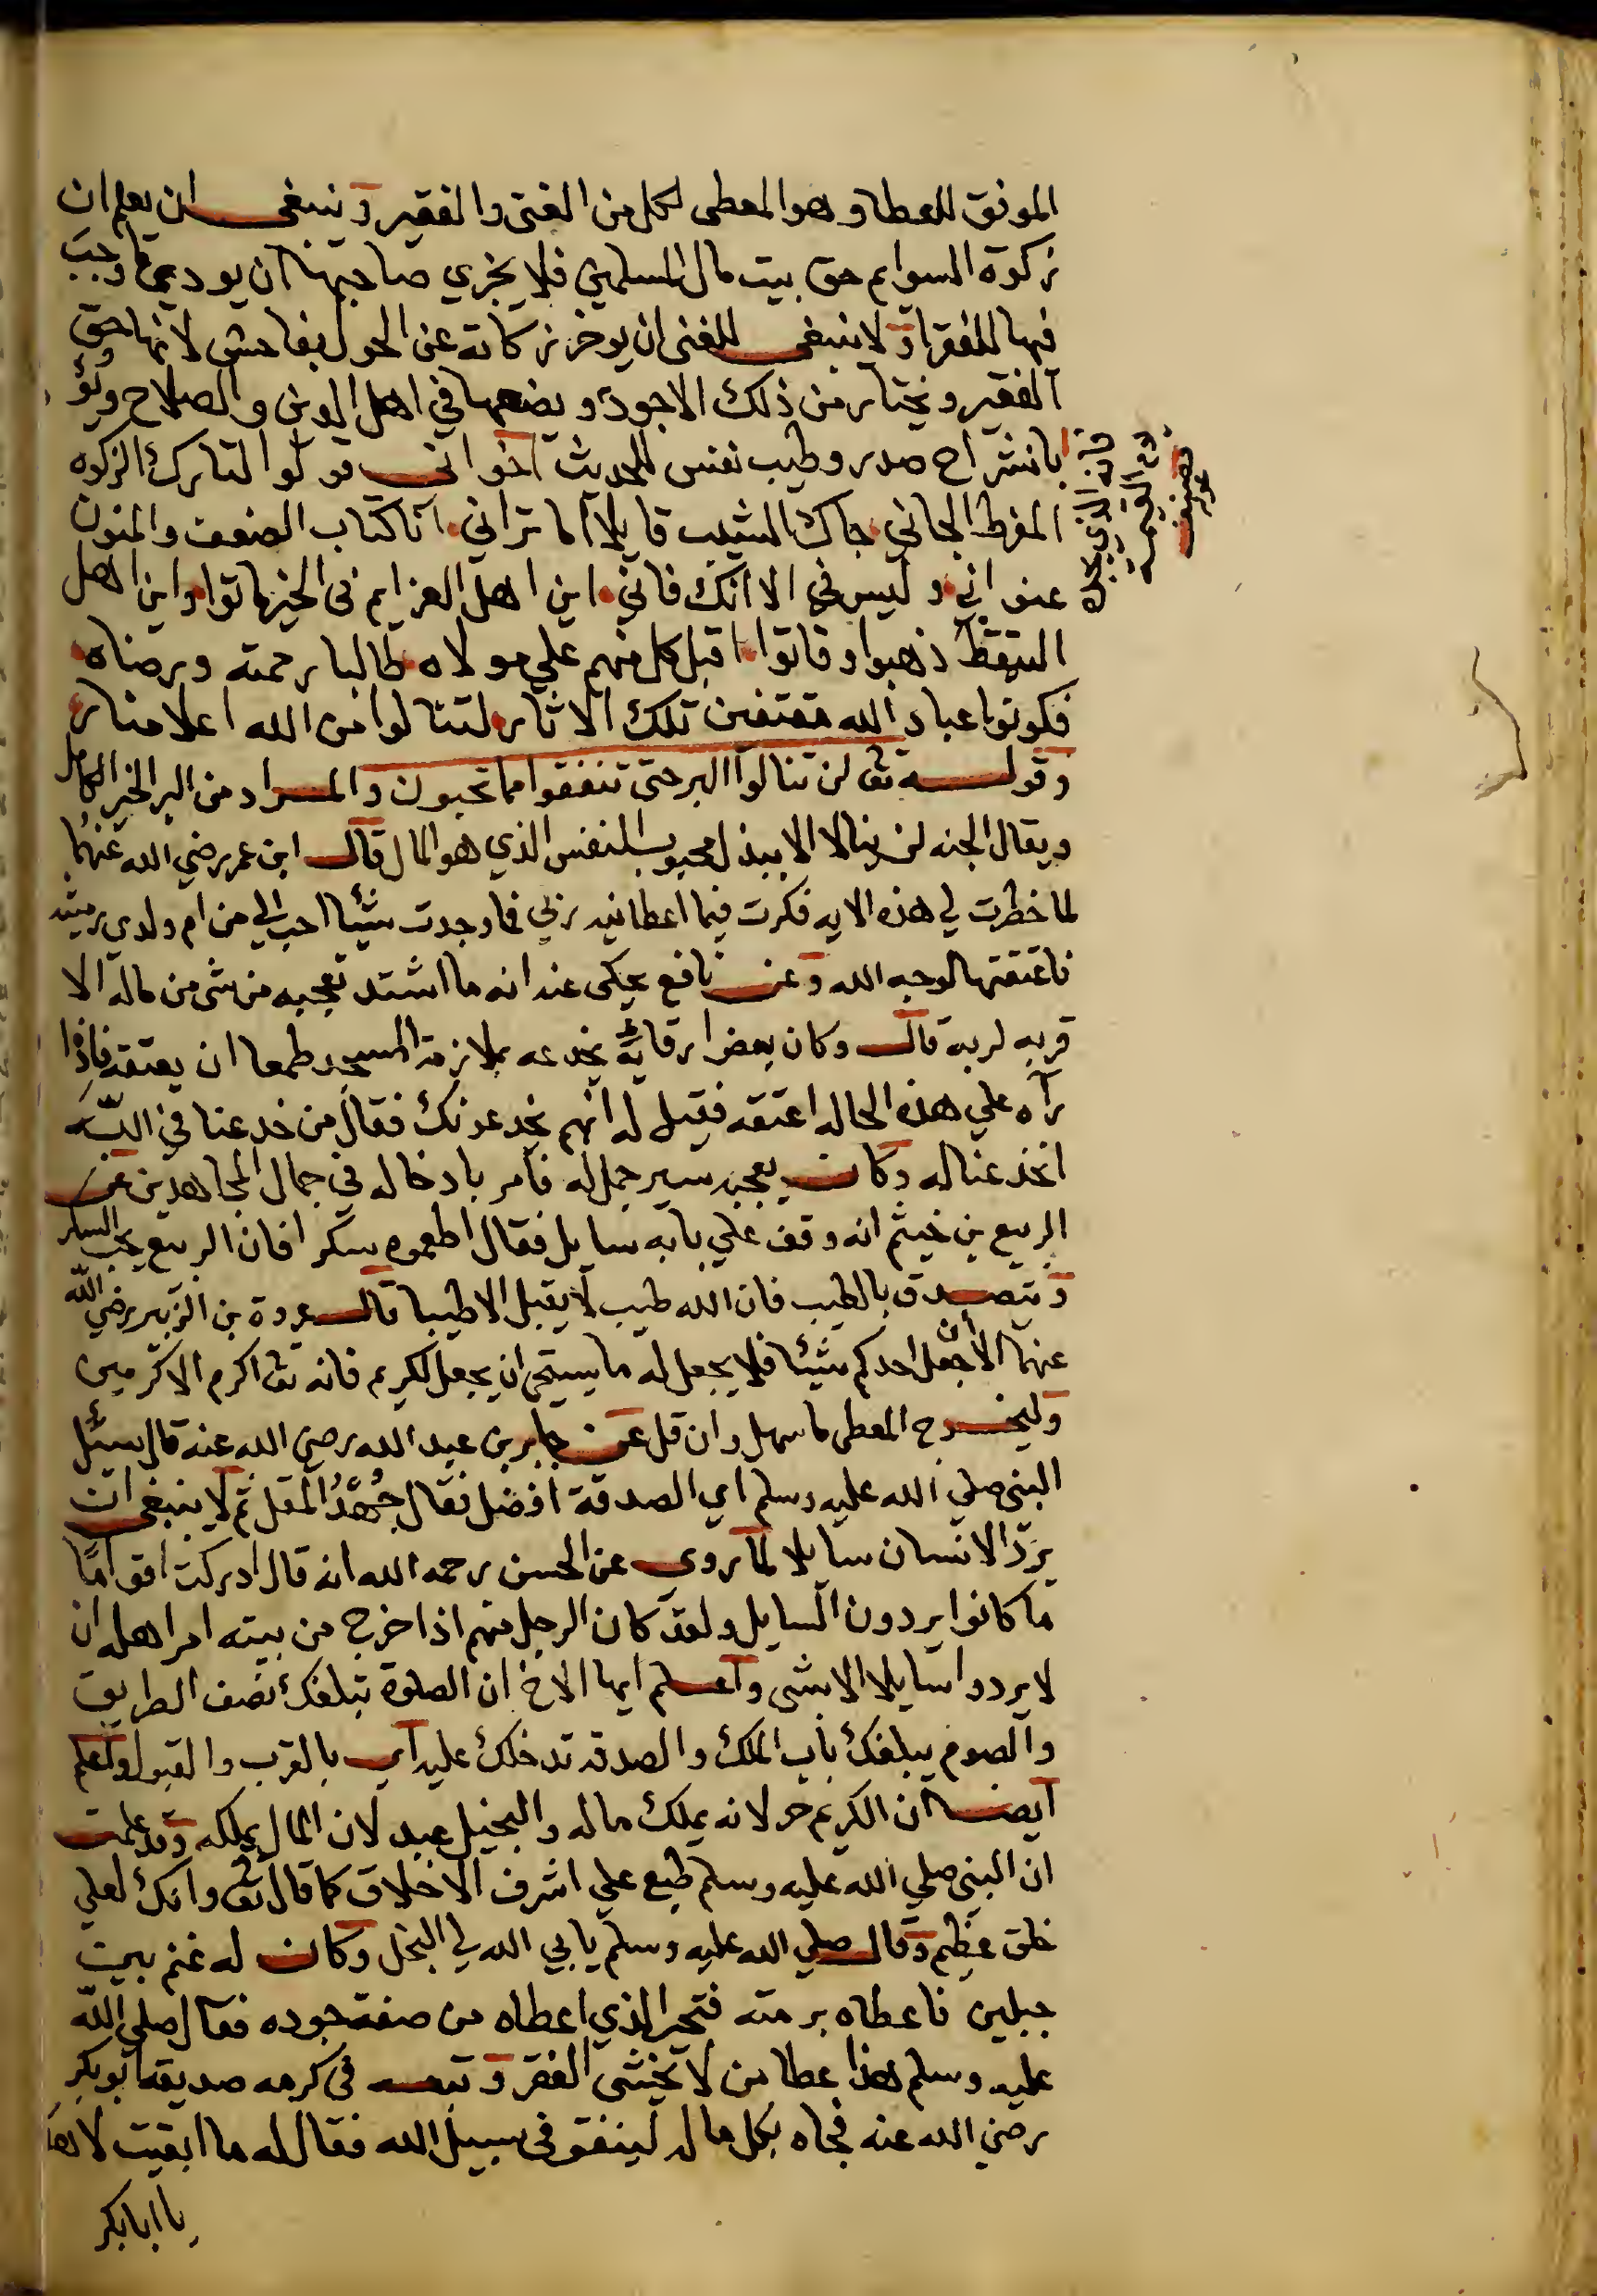 الموفق للعطا وهو المعطى لكل من الغنى والفقير وينبغى ان يعلم ان
زكوة السوايم حق بيت مال المسلمين فلا يجزي صاحبها ان يودى ما وجب
فيها للفقرا ولا ينبغى للغنى ان يوخر زكاته عن الحول بفاحش لانها حق
الفقير ويختار من ذلك الاجود ويضعها في اهل الدين والصلاح
بانشراح صدر وطيب نفس للحديث اخوانى قولوا لتارك الزكوه
المفرط الجاني جاك المشيب قايلا اما تراني انا كتاب الضعف والمنون
عنواني وليس في الا انك فاني اين اهل العزايم فى الخير ماتوا واين اهل
التيقظ ذهبوا وفاتوا اقبل كل منهم علي مولاه طالبا رحمته ورضاه
فكونوا عباد الله مقتفين تلك الاثار لتنالوا من الله اعلا منار
وقوله تعا لن تنالوا البر حتى تنفقوا مما تحبون والمراد من البر الخير الكامل
ويقال الجنه لن ينالا الا ببذل محبوب النفس الذي هو المال قال ابن عمر رضي الله عنهما
لما خطرت لي هذه الايه فكرت فيما اعطانيه ربي فما وجدت شيئا احب الي من ام ولدي رميثه
فاعتقتها لوجه الله وعن نافع يحكى عنه انه ما اشتد تعجبه من شى من ماله الا
قربه لربه قال وكان بعض ارقائه يخدعه بملازمة المسجد طمعا ان يعتقه فاذا
رآه علي هذه الحاله اعتقه فقيل له انهم يخدعونك فقال من خدعنا في الله
انخدعنا له وكان يعجبه سير جمل له فامر بادخاله في جمال المجاهدين عن
الربيع بن خيثم انه وقف علي بابه سايل فقال اطعموه سكرا فان الربيع يحب السكر
ويتصدق بالطيب فان الله طيب لا يقبل الا طيبا قال عروة بن الزبير رضي الله
عنهما ان جعل احدكم شيئا فلا يجعل له ما يستحى ان يجعل لكريم فانه تعا اكرم الاكرمين
وليخرج المعطى ما سهل وان قل عن جابر بن عبد الله رضي الله عنه قال سئل
النبي صلي الله عليه وسلم اي الصدقة افضل فقال جُهْدُ المقل ثم لا ينبغى ان
يردّ الانسان سايلا لما روى عن الحسن رحمه الله انه قال ادركت اقواما
ما كانوا يردون السايل ولقد كان الرجل منهم اذا خرج من بيته امر اهله ان
لا يردوا سايلا الا بشى واعلم ايها الاخ ان الصلوة تبلغك نصف الطريق
والصوم يبلغك باب الملك والصدقه تدخلك عليه اي بالقرب والقبول واعلم
ايضا ان الكريم حر لانه يملك ماله والبخيل عبد لان المال يملكه وقد علمت
ان النبي صلي الله عليه وسلم طبع علي اشرف الاخلاق كما قال تعا وانك لعلي
خلق عظيم وقال صلي الله عليه وسلم يابي الله لي البخل وكان له غنم بين
جبلين فاعطاه برمته فتحير الذي اعطاه من صفة جوده فقال صلي الله
عليه وسلم هذا عطا من لا يخشى الفقر وتبعه في كرمه صديقه ابو بكر
رضي الله عنه فجاه بكل ماله لينفق في سبيل الله فقال له ما ابقيت لاهلك
يا ابا بكر